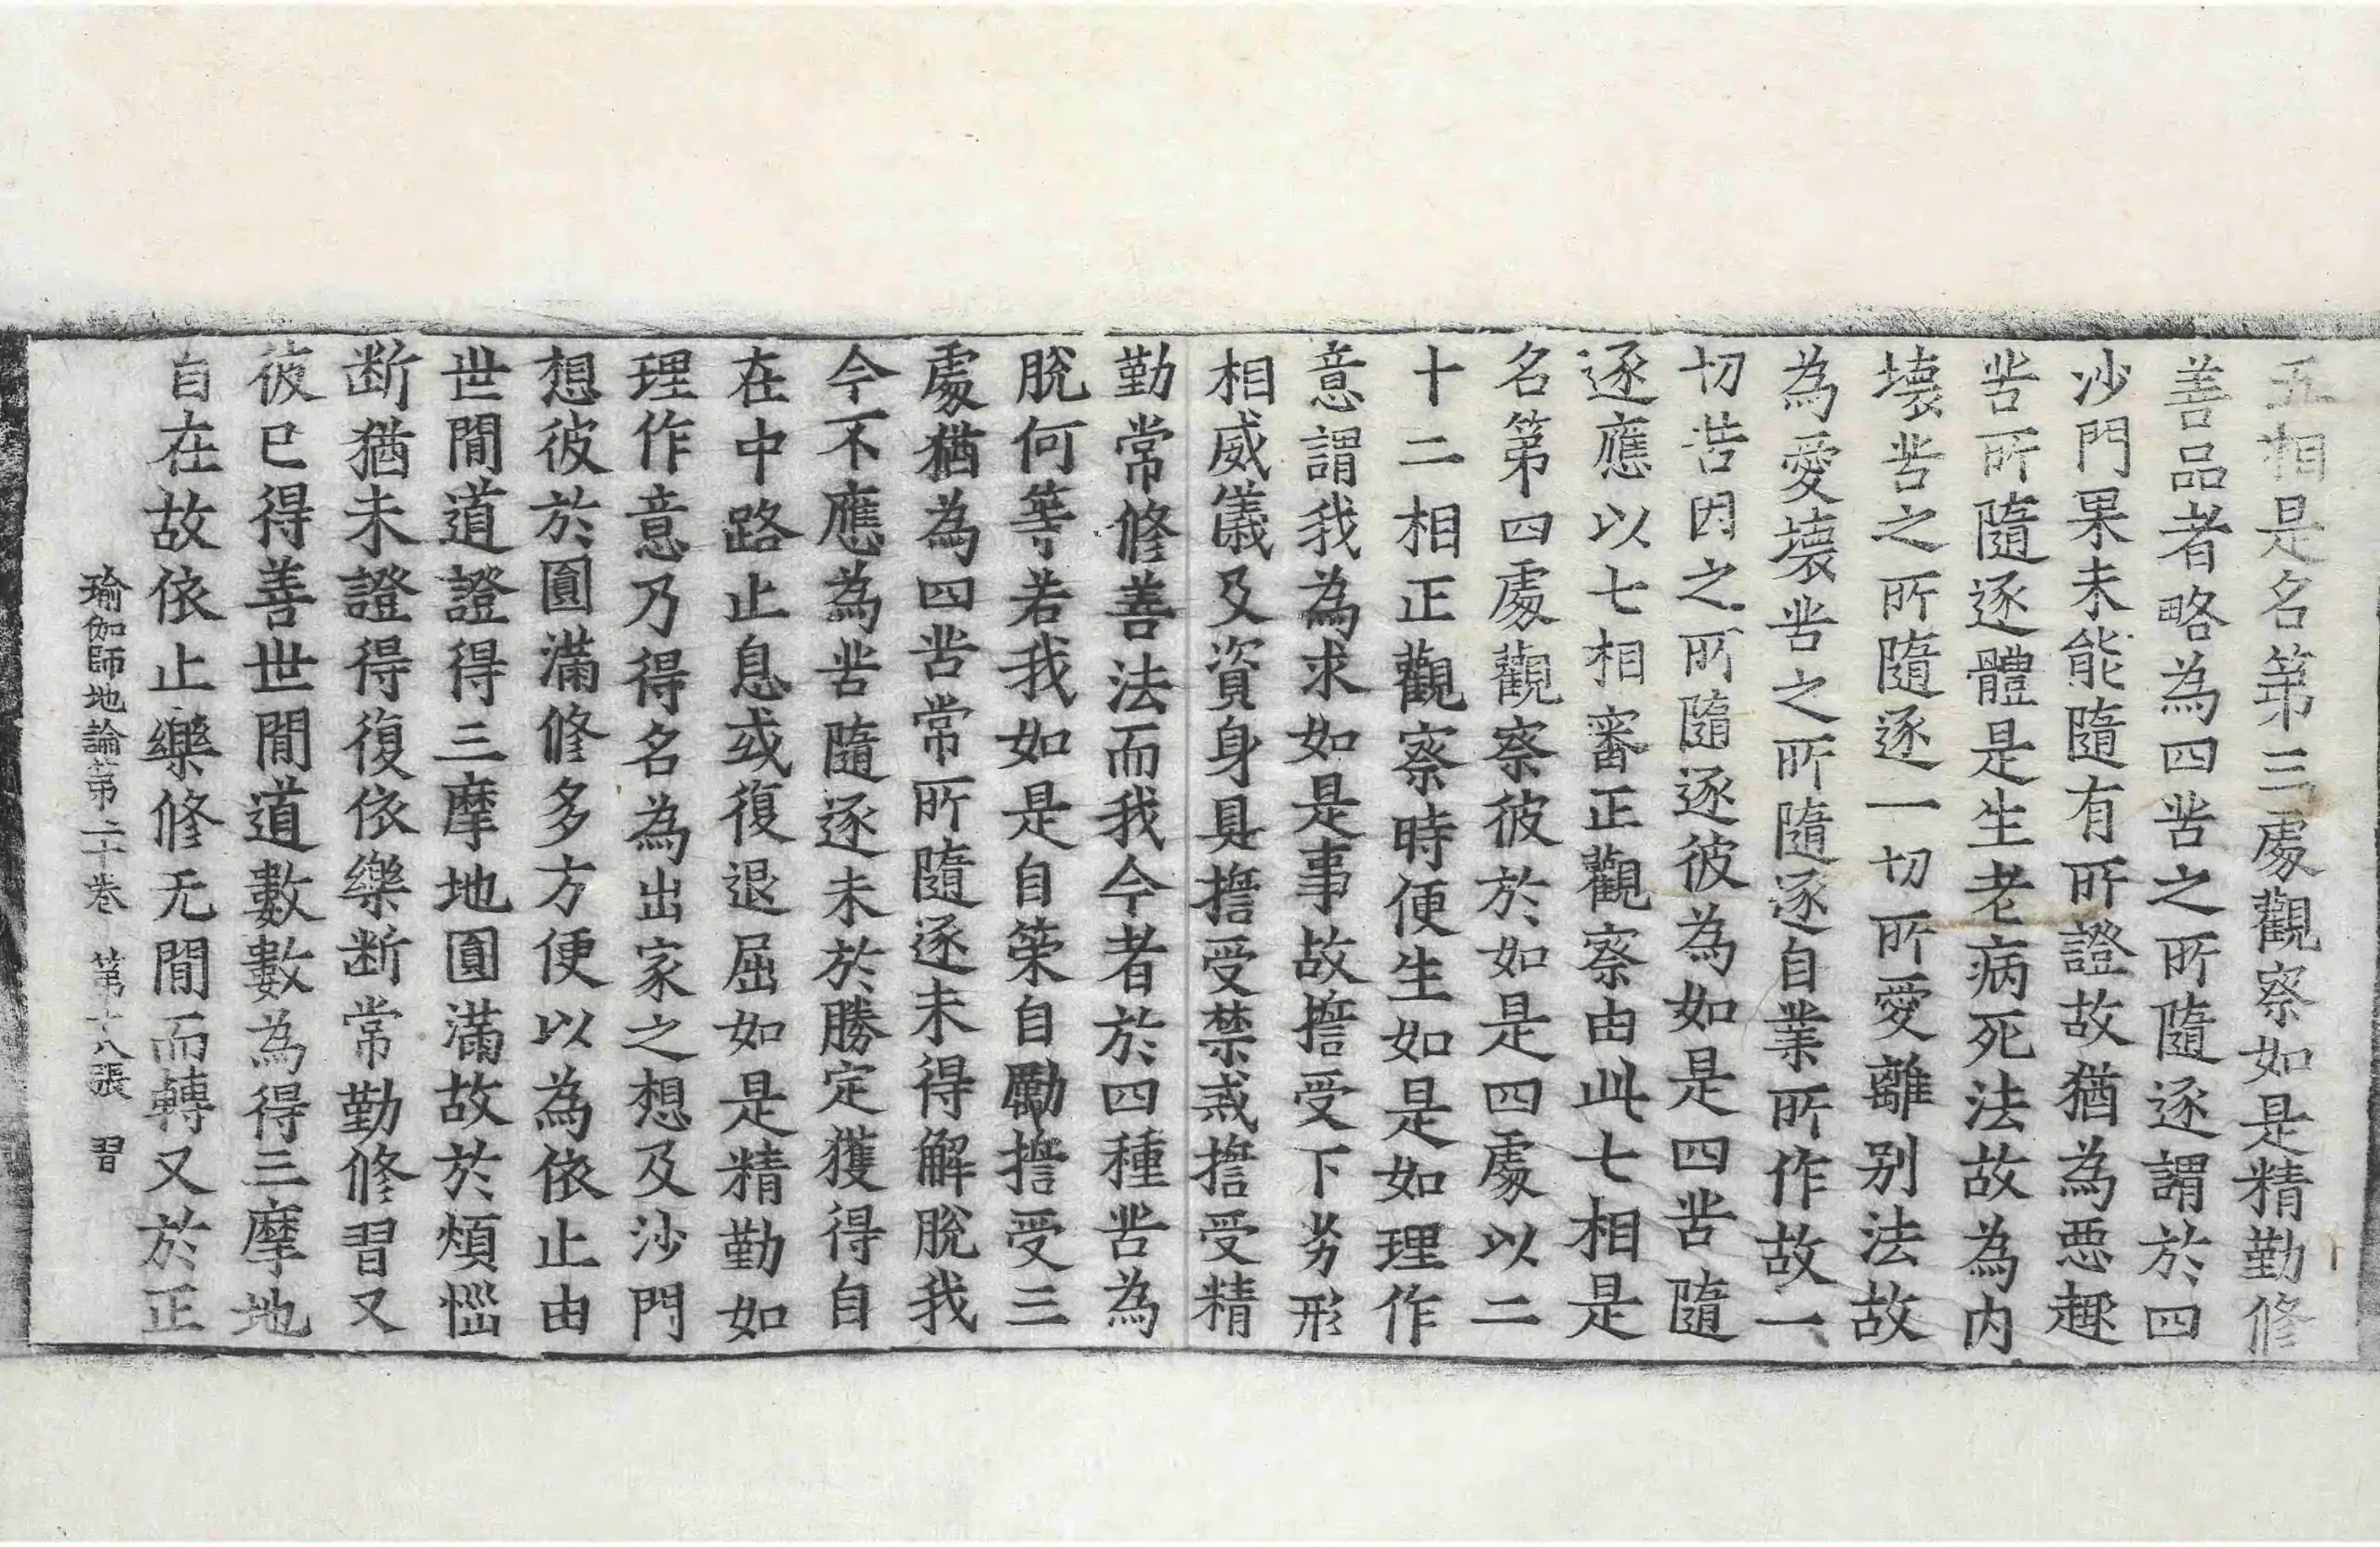 五相是名第三處觀察如是精勤修
善品者略為四苦之所隨逐謂於四
沙門果未能隨有所證故猶為惡趣
苦所隨逐體是生老病死法故為内
壞苦之所隨逐一切所愛離别法故
為愛壞苦之所隨逐自業所作故一
切苦因之所隨逐彼為如是四苦隨
逐應以七相審正觀察由此七相是
名第四處觀察彼於如是四處以二
十二相正觀察時便生如是如理作
意謂我為求如是事故擔受下劣形
相威儀及資身具擔受禁戒擔受精
勤常修善法而我今者於四種苦為
脫何等若我如是自策自勵擔受三
處猶為四苦常所隨逐未得解脫我
今不應為苦隨逐未於勝定獲得自
在中路止息或復退屈如是精勤如
理作意乃得名為出家之想及沙門
想彼於圓滿修多方便以為依止由
世間道證得三摩地圓滿故於煩惱
断猶未證得復依樂断常勤修習又
彼已得善世間道數數為得三摩地
自在故依止樂修无間而轉又於正
瑜伽師地論第二十卷 第十八張 習